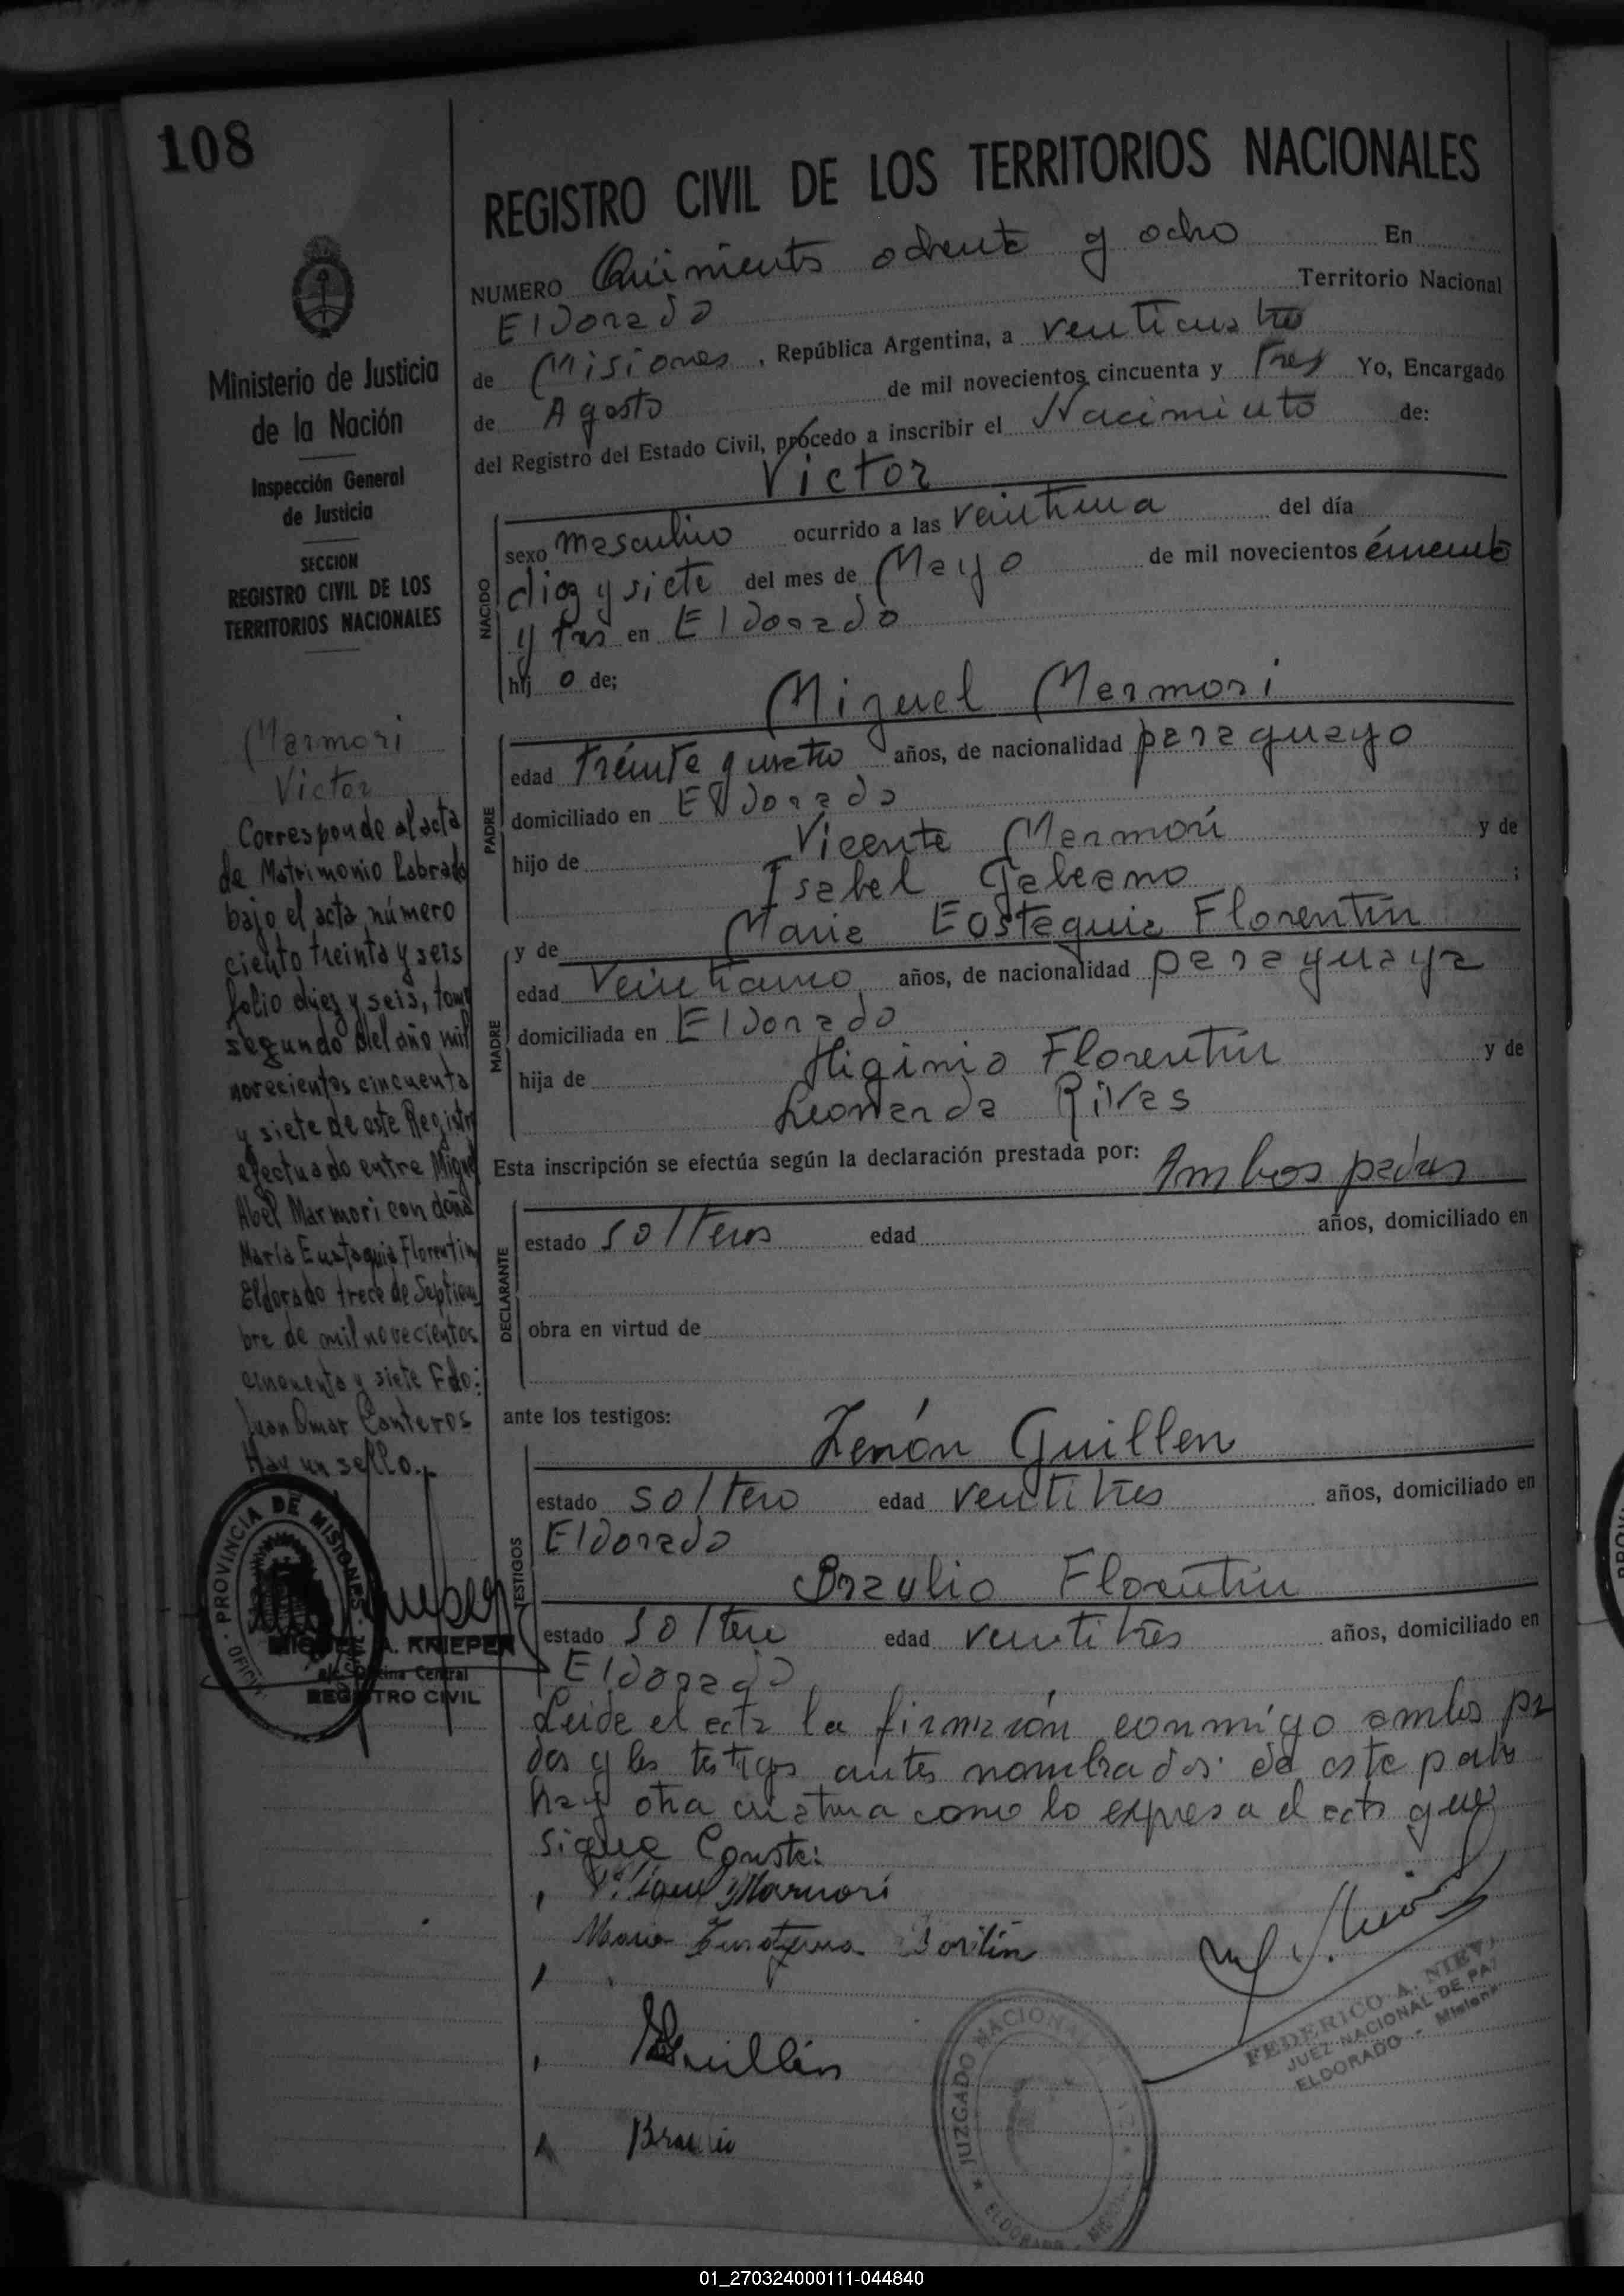 108
REGISTRO CIVIL DE LOS TERRITORIOS NACIONALES
NUMERO Quinientos ochenta y ocho En
Eldorado Territorio Nacional
de Misiones, República Argentina, a venticuatro
de Agosto de mil novecientos cincuenta y Tres Yo, Encargado
del Registro del Estado Civil, procedo a inscribir el Nacimiento de:
Victor
NACIDO
sexo masculino ocurrido a las veintiuna del día
diez y siete del mes de Mayo de mil novecientos
y tres en Eldorado
hij o de;
Miguel Marmori
PADRE
edad años, de nacionalidad paraguayo
domiciliado en Eldorado
hijo de Vicente Marmori y de
Isabel Gabeano ;
y de Maria Eostaquia Florentin
MADRE
edad Veintiuno años, de nacionalidad paraguaya
domiciliada en Eldorado
hija de Higinio Florentin y de
Leonarda Rivas
Esta inscripción se efectúa según la declaración prestada por: Ambos padres
DECLARANTE
estado solteros edad años, domiciliado en
obra en virtud de
ante los testigos:
Zenón Guillen
TESTIGOS
estado soltero edad ventitres años, domiciliado en
Eldorado
Braulio Florentin
estado soltero edad ventitres años, domiciliado en
Eldorado
Leida el acta la firmarón conmigo ambos pa
des y los testigos antes nombrados: de este parto
hay otra criatura como lo expresa el acta que
sigue Conste:
Marmori
Maria
Guillén
Braulio
FEDERICO A. NIEV
JUEZ NACIONAL DE PAZ
ELDORADO - Misiones
JUZGADO NACIONAL
ELDORADO - MISIONES
Ministerio de Justicia
de la Nación
Inspección General
de Justicia
SECCION
REGISTRO CIVIL DE LOS
TERRITORIOS NACIONALES
Marmori
Victor
Corresponde al acta
de Matrimonio Labrado
bajo el acta número
ciento treinta y seis
folio diez y seis, tomo
segundo del año mil
novecientos cincuenta
y siete de este Registro
efectuado entre Miguel
Abel Marmori con doña
María Eustaquia Florentin
Eldorado trece de Septiem
bre de mil novecientos
cincuenta y siete Fdo:
Juan Omar Canteros
Hay un sello.
PROVINCIA DE MISIONES
MIGUEL A. KNIEPER
Oficina Central
REGISTRO CIVIL
01_270324000111-044840